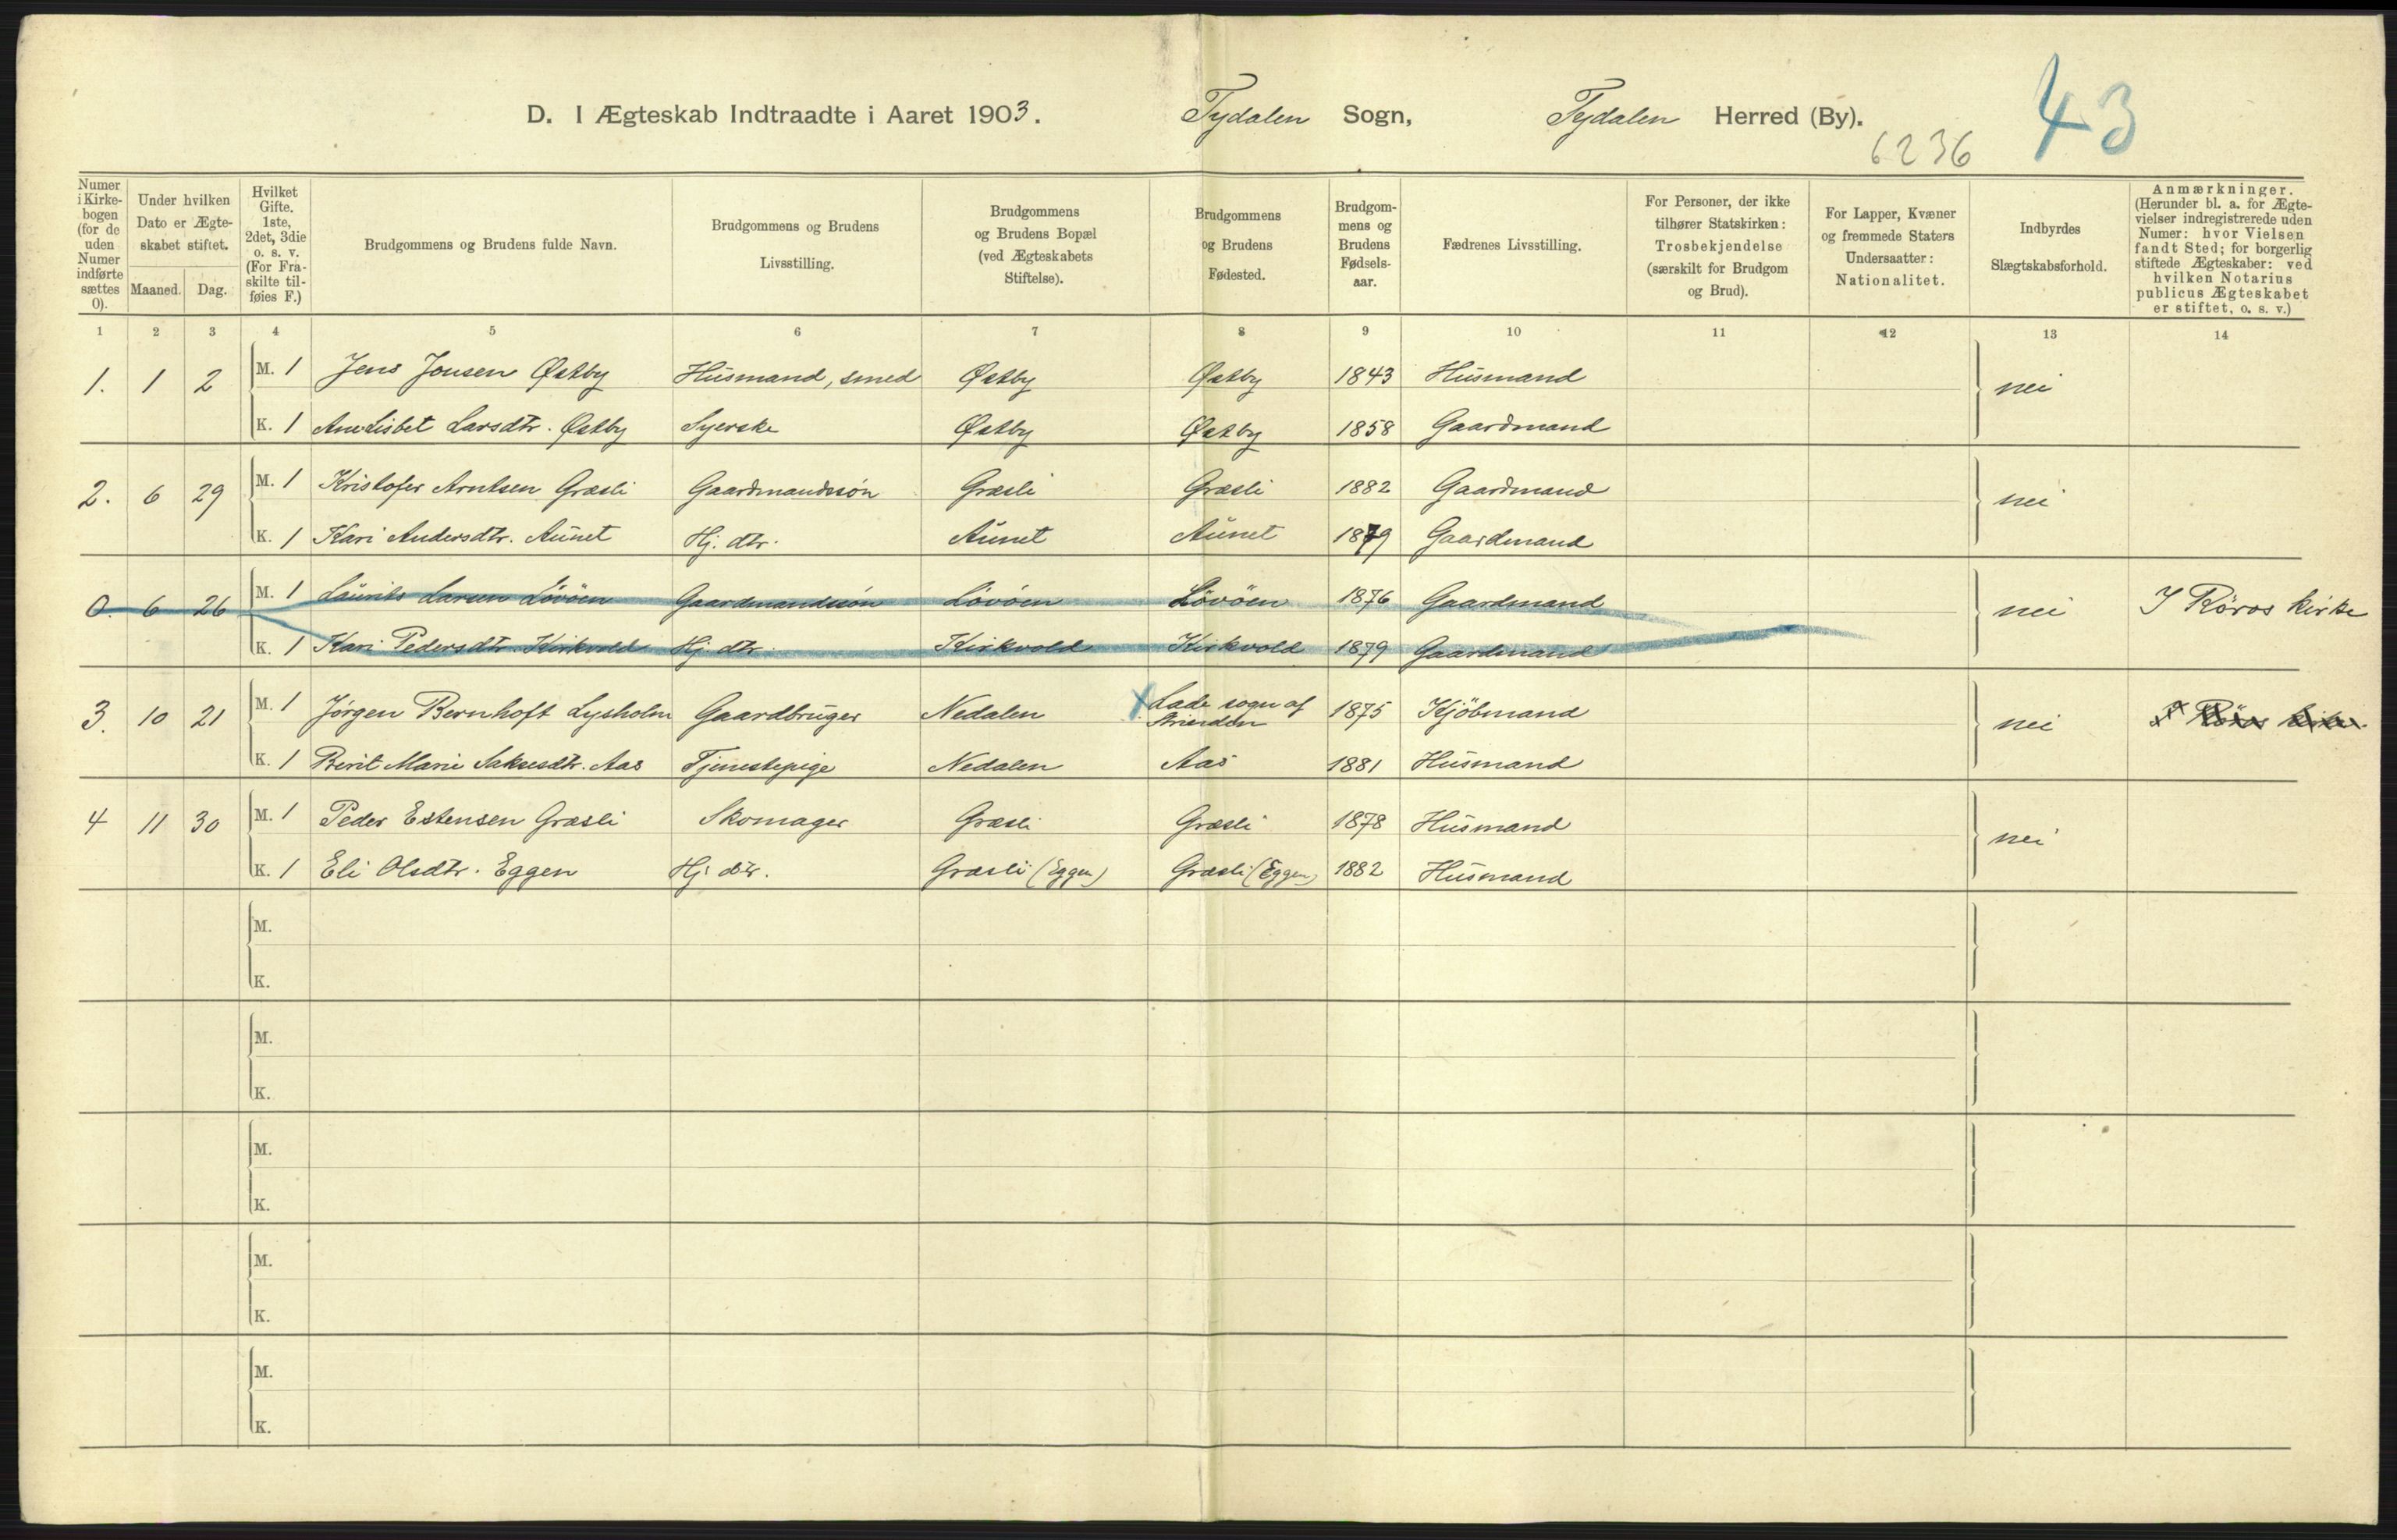 D. I Ægteskab Indtraadte i Aaret 1903. Tydalen Sogn, Tydalen Herred (By). 43
6236
Numer i Kirkebogen (for de uden Numer indførte sættes 0).
Under hvilken Dato er Ægteskabet stiftet.
Maaned. Dag.
Hvilket Gifte. 1ste, 2det, 3die o. s. v. (For Fraskilte tilføies F.)
Brudgommens og Brudens fulde Navn.
Brudgommens og Brudens Livsstilling.
Brudgommens og Brudens Bopæl (ved Ægteskabets Stiftelse).
Brudgommens og Brudens Fødested.
Brudgommens og Brudens Fødselsaar.
Fædrenes Livsstilling.
For Personer, der ikke tilhører Statskirken: Trosbekjendelse (særskilt for Brudgom og Brud).
For Lapper, Kvæner og fremmede Staters Undersaatter: Nationalitet.
Indbyrdes Slægtskabsforhold.
Anmærkninger. (Herunder bl. a. for Ægtevielser indregistrerede uden Numer: hvor Vielsen fandt Sted; for borgerlig stiftede Ægteskaber: ved hvilken Notarius publicus Ægteskabet er stiftet, o. s. v.)
1 2 3 4 5 6 7 8 9 10 11 12 13 14
1. 1 2 M. 1 Jens Jonsen Østby Husmand, smed Østby Østby 1843 Husmand nei
K. 1 Ane Lisbet Larsdtr. Østby Syerske Østby Østby 1858 Gaardmand
2. 6 29 M. 1 Kristofer Arntsen Græsli Gaardmandssön Græsli Græsli 1882 Gaardmand nei
K. 1 Kari Andersdtr. Aunet Hj. dtr. Aunet Aunet 1879 Gaardmand
0. 6 26 M. 1 Laurits Larsen Lövöen Gaardmandssön Lövöen Lövöen 1876 Gaardmand nei I Röros kirke
K. 1 Kari Pedersdtr. Kirkvold Hj. dtr. Kirkvold Kirkvold 1879 Gaardmand
3. 10 21 M. 1 Jörgen Bernhoft Lysholm Gaardbruger Nedalen X Lade sogn af Strinden 1875 Kjöbmand nei
K. 1 Berit Marie Saksesdtr. Aas Tjenestepige Nedalen Aas 1881 Husmand
4 11 30 M. 1 Peder Estensen Græsli Skomager Græsli Græsli 1878 Husmand nei
K. 1 Eli Olsdtr. Eggen Hj. dtr. Græsli (Eggen) Græsli (Eggen) 1882 Husmand
M.
K.
M.
K.
M.
K.
M.
K.
M.
K.